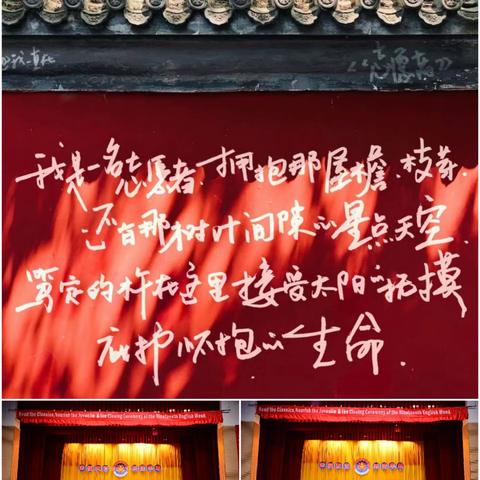 《志愿者》
我是一名志愿者.拥抱那屋檐.枝芽.
还有那树叶间隙的星点天空.
笃定的杵在这里接受太阳的抚摸
庇护怀抱的生命.
Read the Classics, Nourish the Juvenile & the Closing Ceremony of the Nineteenth English Week
Read the Classics, Nourish the Juvenile & the Closing Ceremony of the Nineteenth English Week